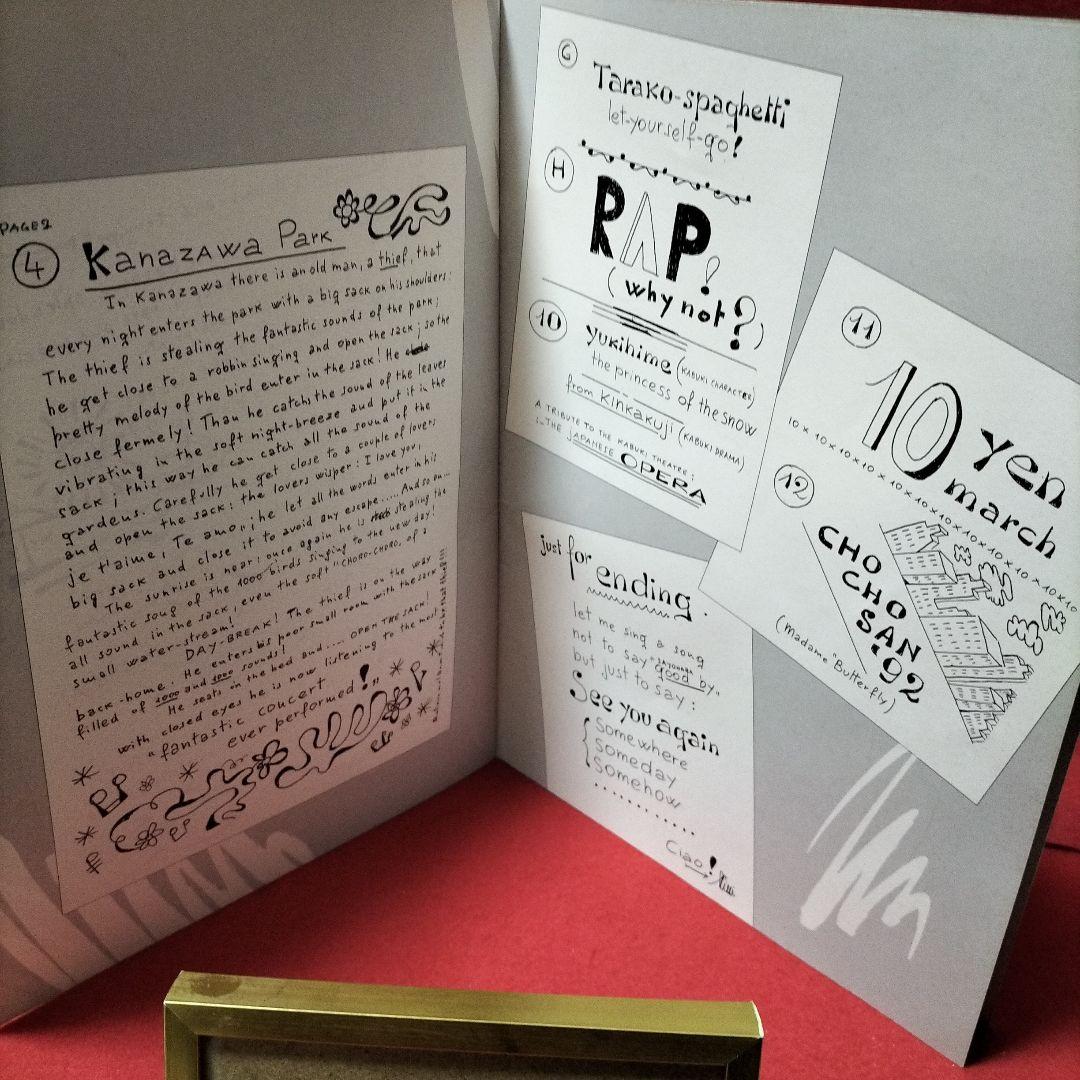 PAGE 2
4 Kanazawa Park
In Kanazawa there is an old man, a thief, that
every night enters the park with a big sack on his shoulders:
The thief is stealing the fantastic sounds of the park;
he get close to a robbin singing and open the sack; so the
pretty melody of the bird enter in the sack! He
close fermely! Than he catch the sound of the leaves
vibrating in the soft night-breeze and put it in the
sack; this way he can catch all the sound of the
gardens. Carefully he get close to a couple of lovers
and open the sack: the lovers wisper: I love you,
je t'aime, Te amo,; he let all the words enter in his
big sack and close it to avoid any escape..... And so on...
The sunrise is near: once again he is stealing the
fantastic soug of the 1000 birds singing to the new day!
all sound in the sack, even the soft "CHORO-CHORO, of a
small water-stream!
DAY-BREAK! The thief is on the way
back-home. He enters his poor small room with the sack
filled of 1000 and 1000 sounds!
He seats on the bed and.... OPEN THE SACK!
with closed eyes he is now listening to the most
"fantastic concert
ever performed!"
G
Tarako-spaghetti
let-yourself-go!
H
RAP!
(why not?)
10 Yukihime (KABUKI CHARACTER)
the princess of the snow
from Kinkakuji (KABUKI DRAMA)
A TRIBUTE TO THE KABUKI THEATRE;
:-THE JAPANESE OPERA
just for ending.
let me sing a song
not to say "SAYONARA"
"good by"
but just to say:
See you again
Somewhere
Someday
Somehow
Ciao!
11
10 Yen
march
10 x 10 x 10 x 10 x 10 x 10 x 10 x 10 x 10 x 10 x 10 x 10
12
CHO
CHO
SAN
'92
(Madame "Butterfly)